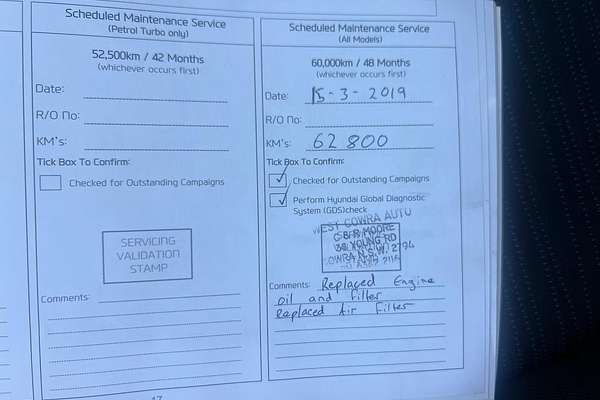 Scheduled Maintenance Service
(Petrol Turbo only)
52,500km / 42 Months
(whichever occurs first)
Date:
R/O No:
KM's:
Tick Box To Confirm:
Checked for Outstanding Campaigns
SERVICING
VALIDATION
STAMP
Comments:
Scheduled Maintenance Service
(All Models)
60,000km / 48 Months
(whichever occurs first)
Date: 15-3-2019
R/O No:
KM's: 62800
Tick Box To Confirm:
Checked for Outstanding Campaigns
Perform Hyundai Global Diagnostic
System (GDS)check
WEST COWRA AUTO
C & R MOORE
38 YOUNG RD
COWRA N.S.W. 2794
Comments: Replaced Engine
oil and filter
Replaced Air Filter
17